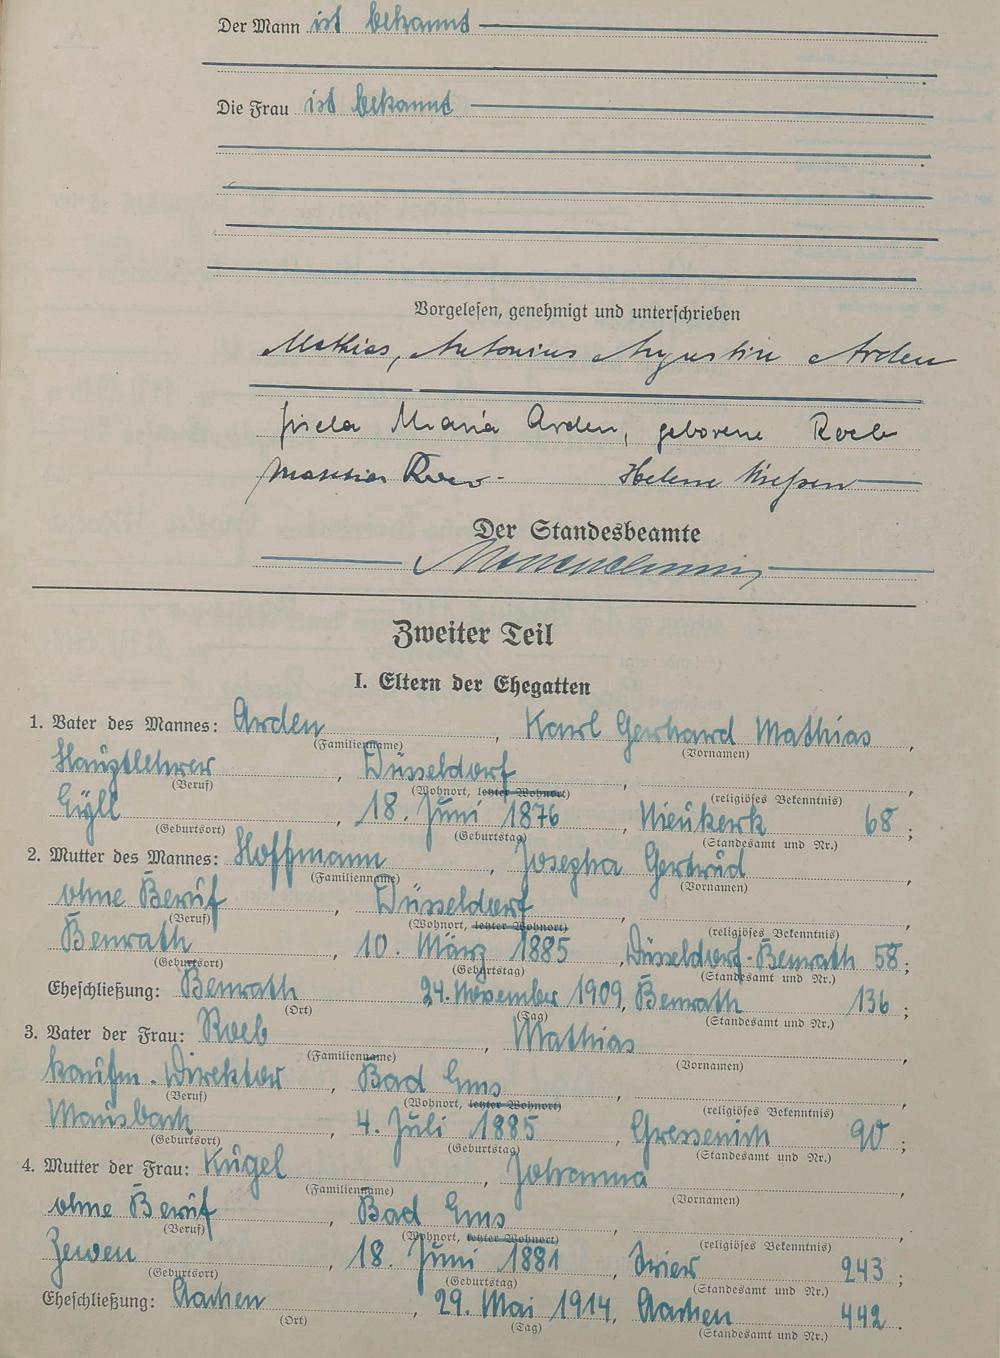 Der Mann ist bekannt
Die Frau ist bekannt
Vorgelesen, genehmigt und unterschrieben
Mathias, Antonius Augustin Arden
Gisela Maria Arden, geborene Roeb
Mathias Roeb Helene
Der Standesbeamte
Zweiter Teil
I. Eltern der Ehegatten
1. Vater des Mannes: Arden, Karl Gerhard Mathias,
(Familienname) (Vornamen)
Hauptlehrer, Düsseldorf,
(Beruf) (Wohnort, letzter Wohnort) (religiöses Bekenntnis)
Eyll, 18. Juni 1876, Nieukerk 68;
(Geburtsort) (Geburtstag) (Standesamt und Nr.)
2. Mutter des Mannes: Hoffmann, Josepha Gertrud,
(Familienname) (Vornamen)
ohne Beruf, Düsseldorf,
(Beruf) (Wohnort, letzter Wohnort) (religiöses Bekenntnis)
Benrath, 10. März 1885, Düsseldorf-Benrath 58;
(Geburtsort) (Geburtstag) (Standesamt und Nr.)
Eheschließung: Benrath 24. November 1909, Benrath 136;
(Ort) (Tag) (Standesamt und Nr.)
3. Vater der Frau: Roeb, Mathias,
(Familienname) (Vornamen)
kaufm. Direktor, Bad Ems,
(Beruf) (Wohnort, letzter Wohnort) (religiöses Bekenntnis)
Mausbach, 4. Juli 1885, Gressenich 90;
(Geburtsort) (Geburtstag) (Standesamt und Nr.)
4. Mutter der Frau: Kügel, Johanna,
(Familienname) (Vornamen)
ohne Beruf, Bad Ems,
(Beruf) (Wohnort, letzter Wohnort) (religiöses Bekenntnis)
Zewen, 18. Juni 1881, Trier 243;
(Geburtsort) (Geburtstag) (Standesamt und Nr.)
Eheschließung: Aachen, 29. Mai 1914, Aachen 442.
(Ort) (Tag) (Standesamt und Nr.)